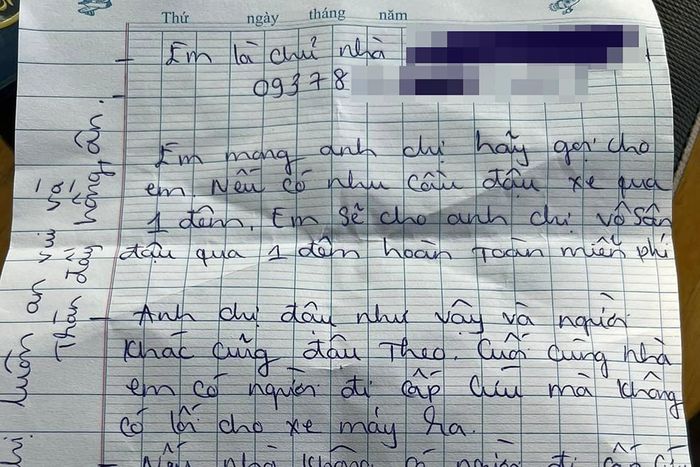 Thứ ngày tháng năm
- Em là chủ nhà
09378
Em mong anh chị hãy gọi cho
em. Nếu có nhu cầu đậu xe qua
1 đêm. Em sẽ cho anh chị vô sân
đậu qua 1 đêm hoàn toàn miễn phí
- Anh chị đậu như vậy và người
khác cũng đậu theo. Cuối cùng nhà
em có người đi cấp cứu mà không
có lối cho xe máy ra.
- Nếu nhà không có người đi cấp
luôn an vui và
Thân đầy hồng ân.